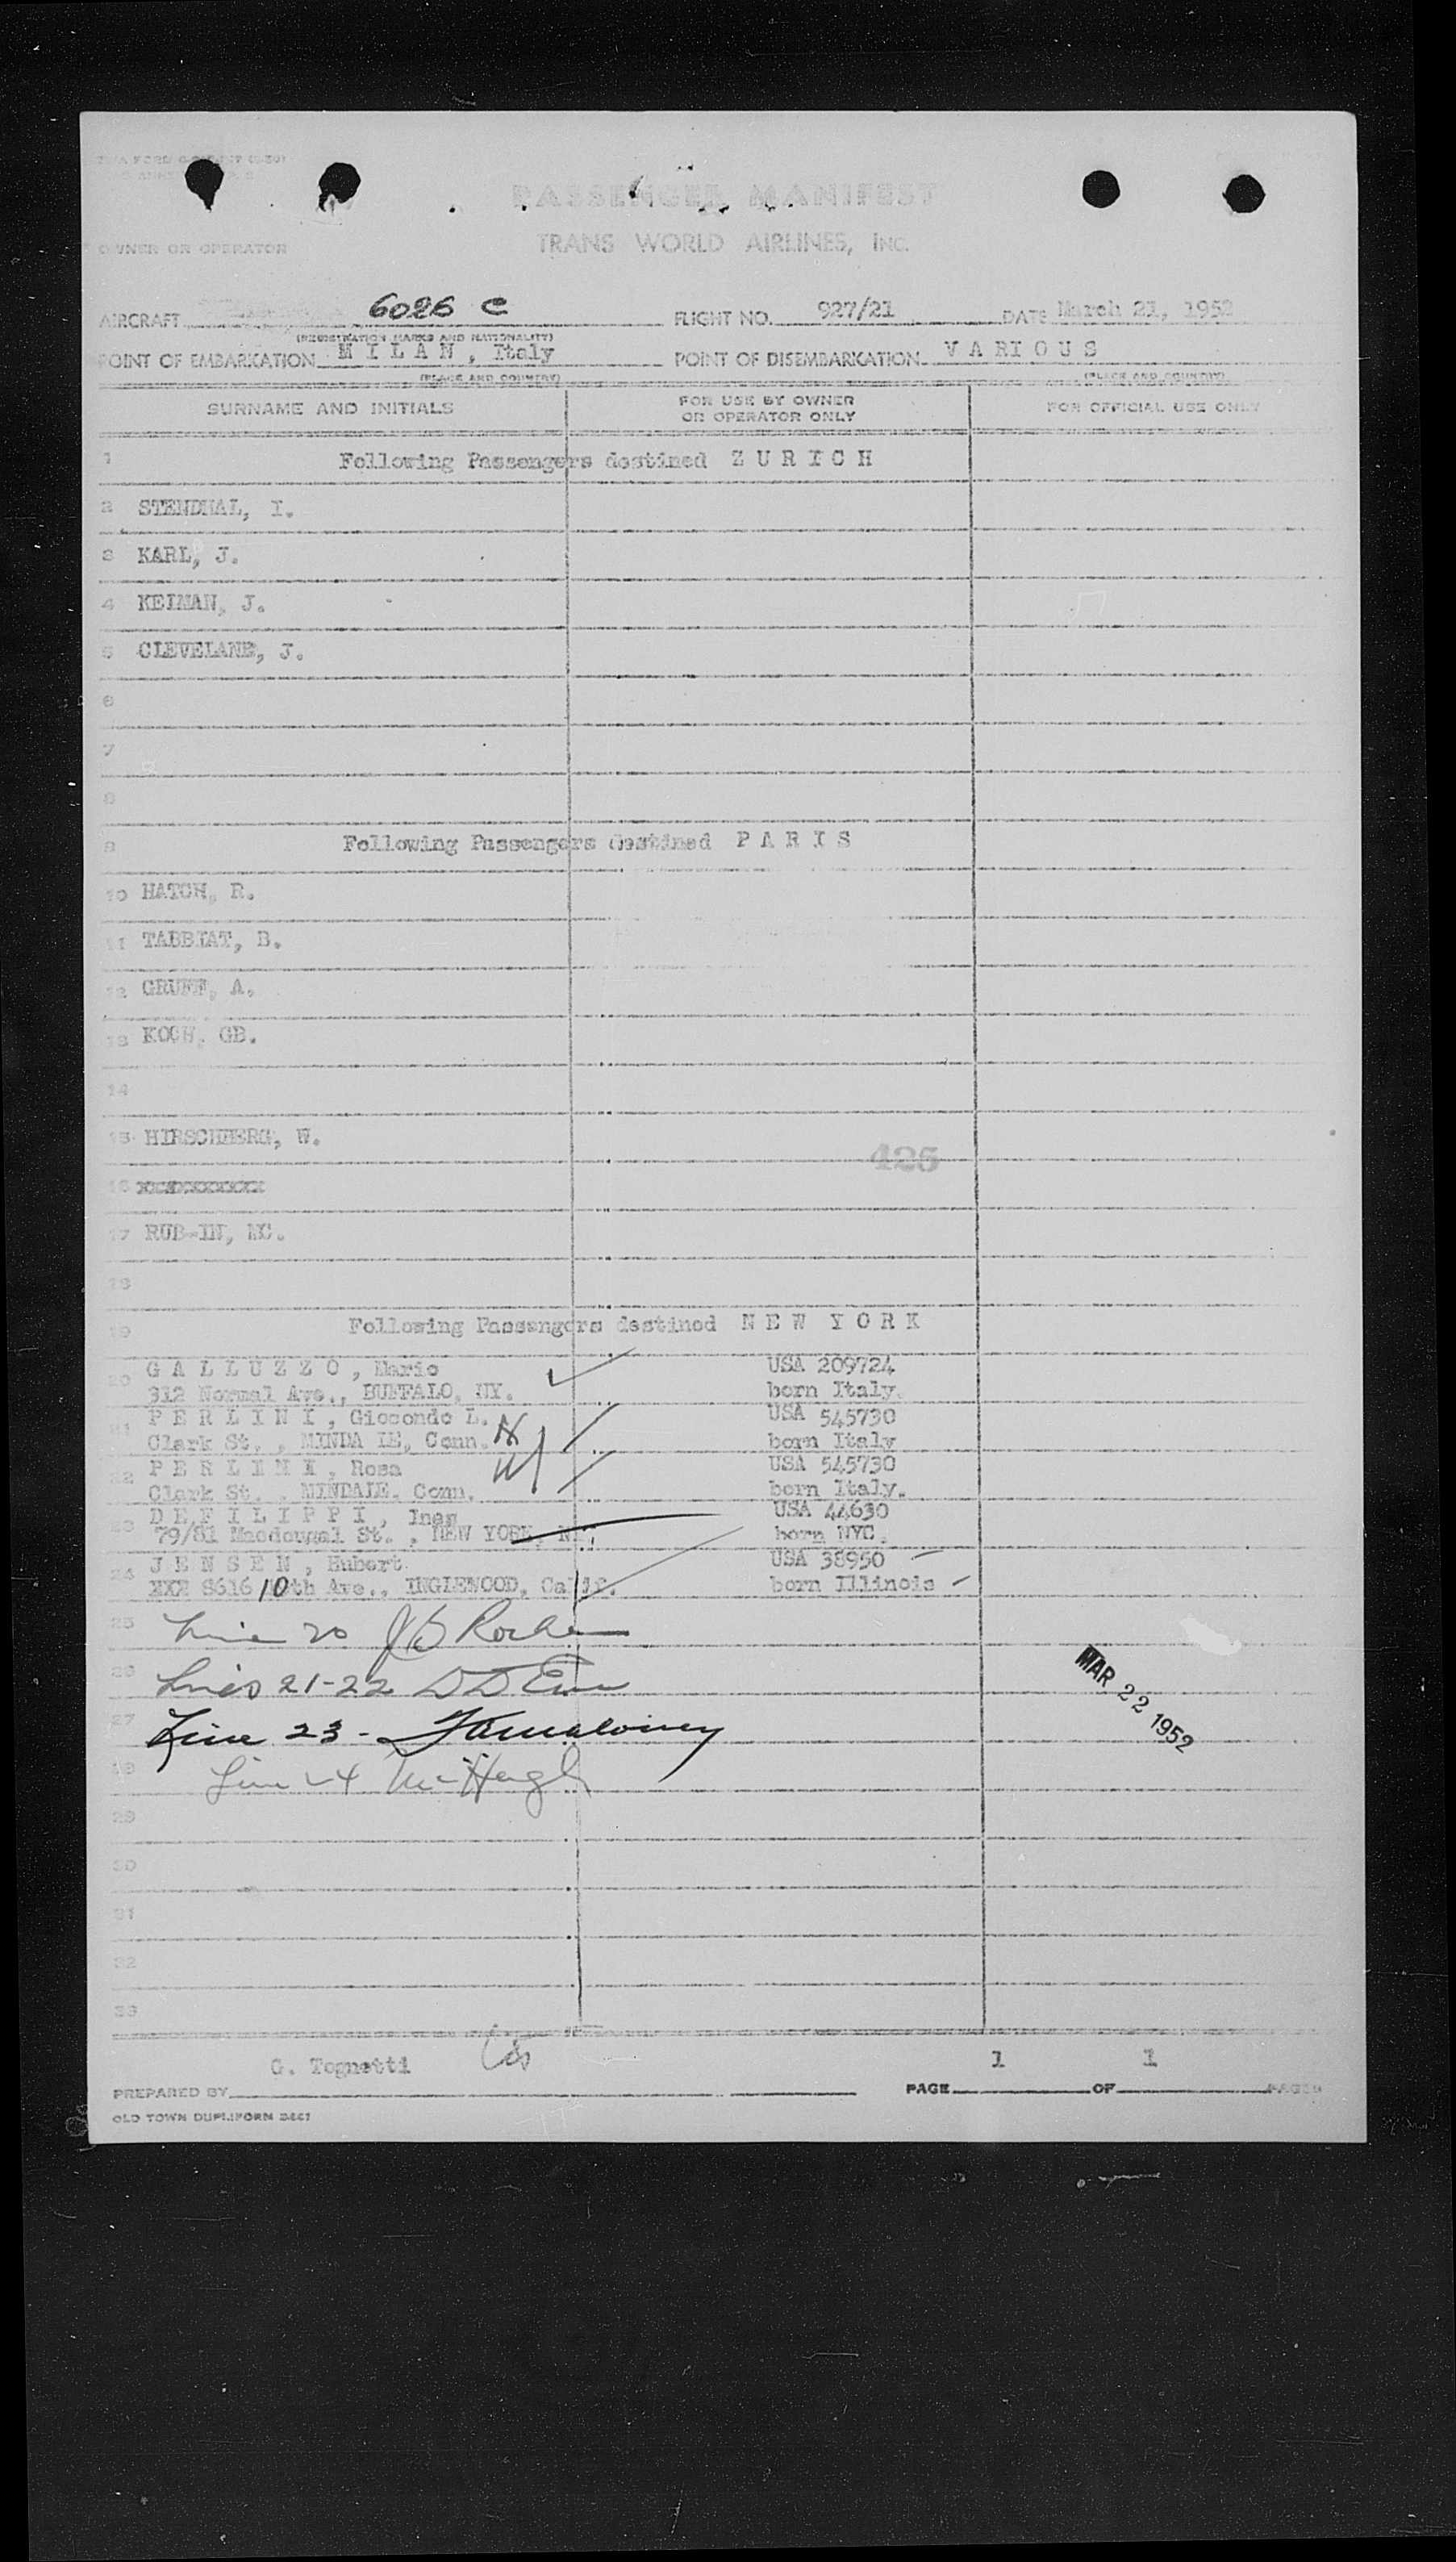 OWNER OR OPERATOR
PASSENGER MANIFEST
TRANS WORLD AIRLINES, INC.
AIRCRAFT 6026 C FLIGHT NO. 927/21 DATE March 21, 1952
(REGISTRATION MARKS AND NATIONALITY)
POINT OF EMBARKATION M I L A N , Italy POINT OF DISEMBARKATION V A R I O U S
(PLACE AND COUNTRY) (PLACE AND COUNTRY)
SURNAME AND INITIALS FOR USE BY OWNER OR OPERATOR ONLY FOR OFFICIAL USE ONLY
1 Following Passengers destined Z U R I C H
2 STENDHAL, I.
3 KARL, J.
4 KEIMAN, J.
5 CLEVELAND, J.
6
7
8
9 Following Passengers destined P A R I S
10 HATCH, R.
11 TABBIAT, B.
12 A.
13 KOCH, GB.
14
15 HIRSCHBERG, W.
425
16 xxxxxxxxxxx
17 RUB-IN, MC.
18
19 Following Passengers destined N E W Y O R K
20 G A L L U Z Z O , Mario USA 209724
312 Normal Ave., BUFFALO, NY. born Italy.
21 P E R L I N I , Giocondo L. USA 545730
Clark St. , Conn. born Italy
22 P E R L I N I , Rosa USA 545730
Clark St. , Conn. born Italy.
23 D E F I L I P P I , Ines USA 44630
79/81 Macdougal St. , NEW YORK, NY. born NYC.
24 J E N S E N , Hubert USA 38950
XXX 8616 10th Ave., INGLEWOOD, Calif. born Illinois
25 Line 20
26 Lines 21-22
MAR 22 1952
27 Line 23 -
28 Line 24 McHugh
29
30
31
32
33
G. Tognetti 1 1
PREPARED BY PAGE OF PAGES
OLD TOWN DUPLIFORM